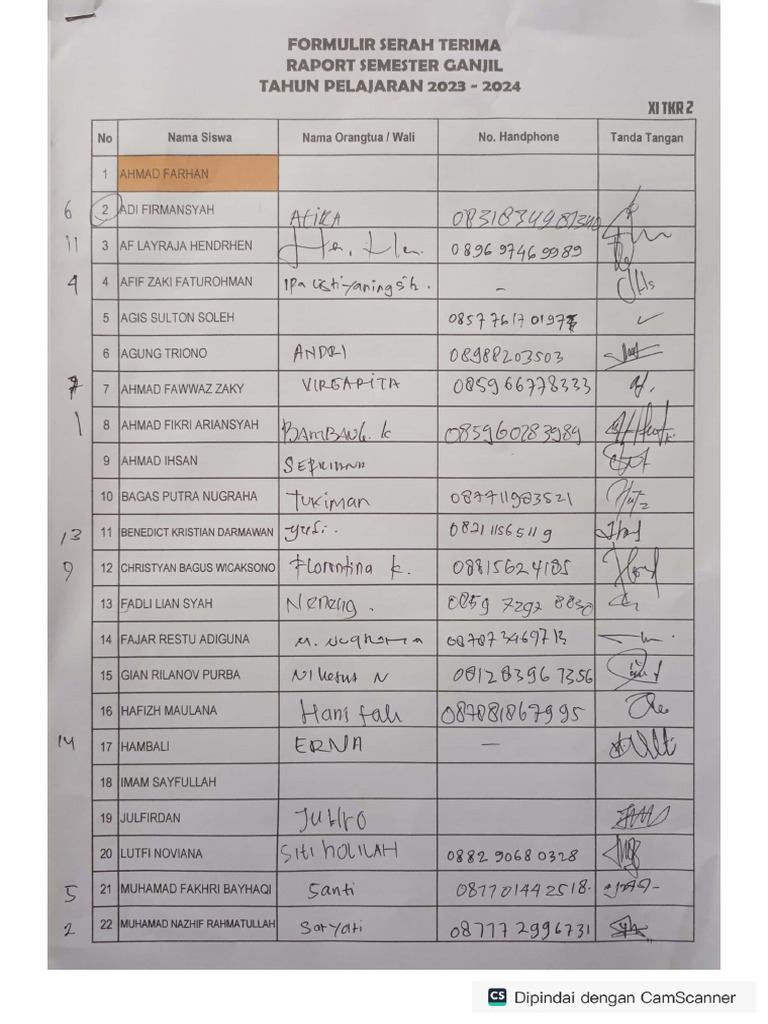 FORMULIR SERAH TERIMA
RAPORT SEMESTER GANJIL
TAHUN PELAJARAN 2023 - 2024
XI TKR 2
No Nama Siswa Nama Orangtua / Wali No. Handphone Tanda Tangan
1 AHMAD FARHAN
6 2 ADI FIRMANSYAH ATIKA
11 3 AF LAYRAJA HENDRHEN 089697469989
4 4 AFIF ZAKI FATUROHMAN Ipa -
5 AGIS SULTON SOLEH
6 AGUNG TRIONO ANDRI 08988203503
7 7 AHMAD FAWWAZ ZAKY VIRGARITA 085966778333
1 8 AHMAD FIKRI ARIANSYAH BAMBANG. K 085960283989
9 AHMAD IHSAN
10 BAGAS PUTRA NUGRAHA TUKIMAN 087711983521
13 11 BENEDICT KRISTIAN DARMAWAN yusi. 082111565119
9 12 CHRISTYAN BAGUS WICAKSONO Florentina K. 08815624185
13 FADLI LIAN SYAH Neneng. 0859 7292 8830
14 FAJAR RESTU ADIGUNA 087873469713
15 GIAN RILANOV PURBA Ni Ketus N 081283967356
16 HAFIZH MAULANA Hanifah 087881867995
14 17 HAMBALI ERNA -
18 IMAM SAYFULLAH
19 JULFIRDAN
20 LUTFI NOVIANA SITI HOLILAH 0882 9068 0328
5 21 MUHAMAD FAKHRI BAYHAQI Santi 087701442518.
2 22 MUHAMAD NAZHIF RAHMATULLAH Saryati 087772996731
CS Dipindai dengan CamScanner